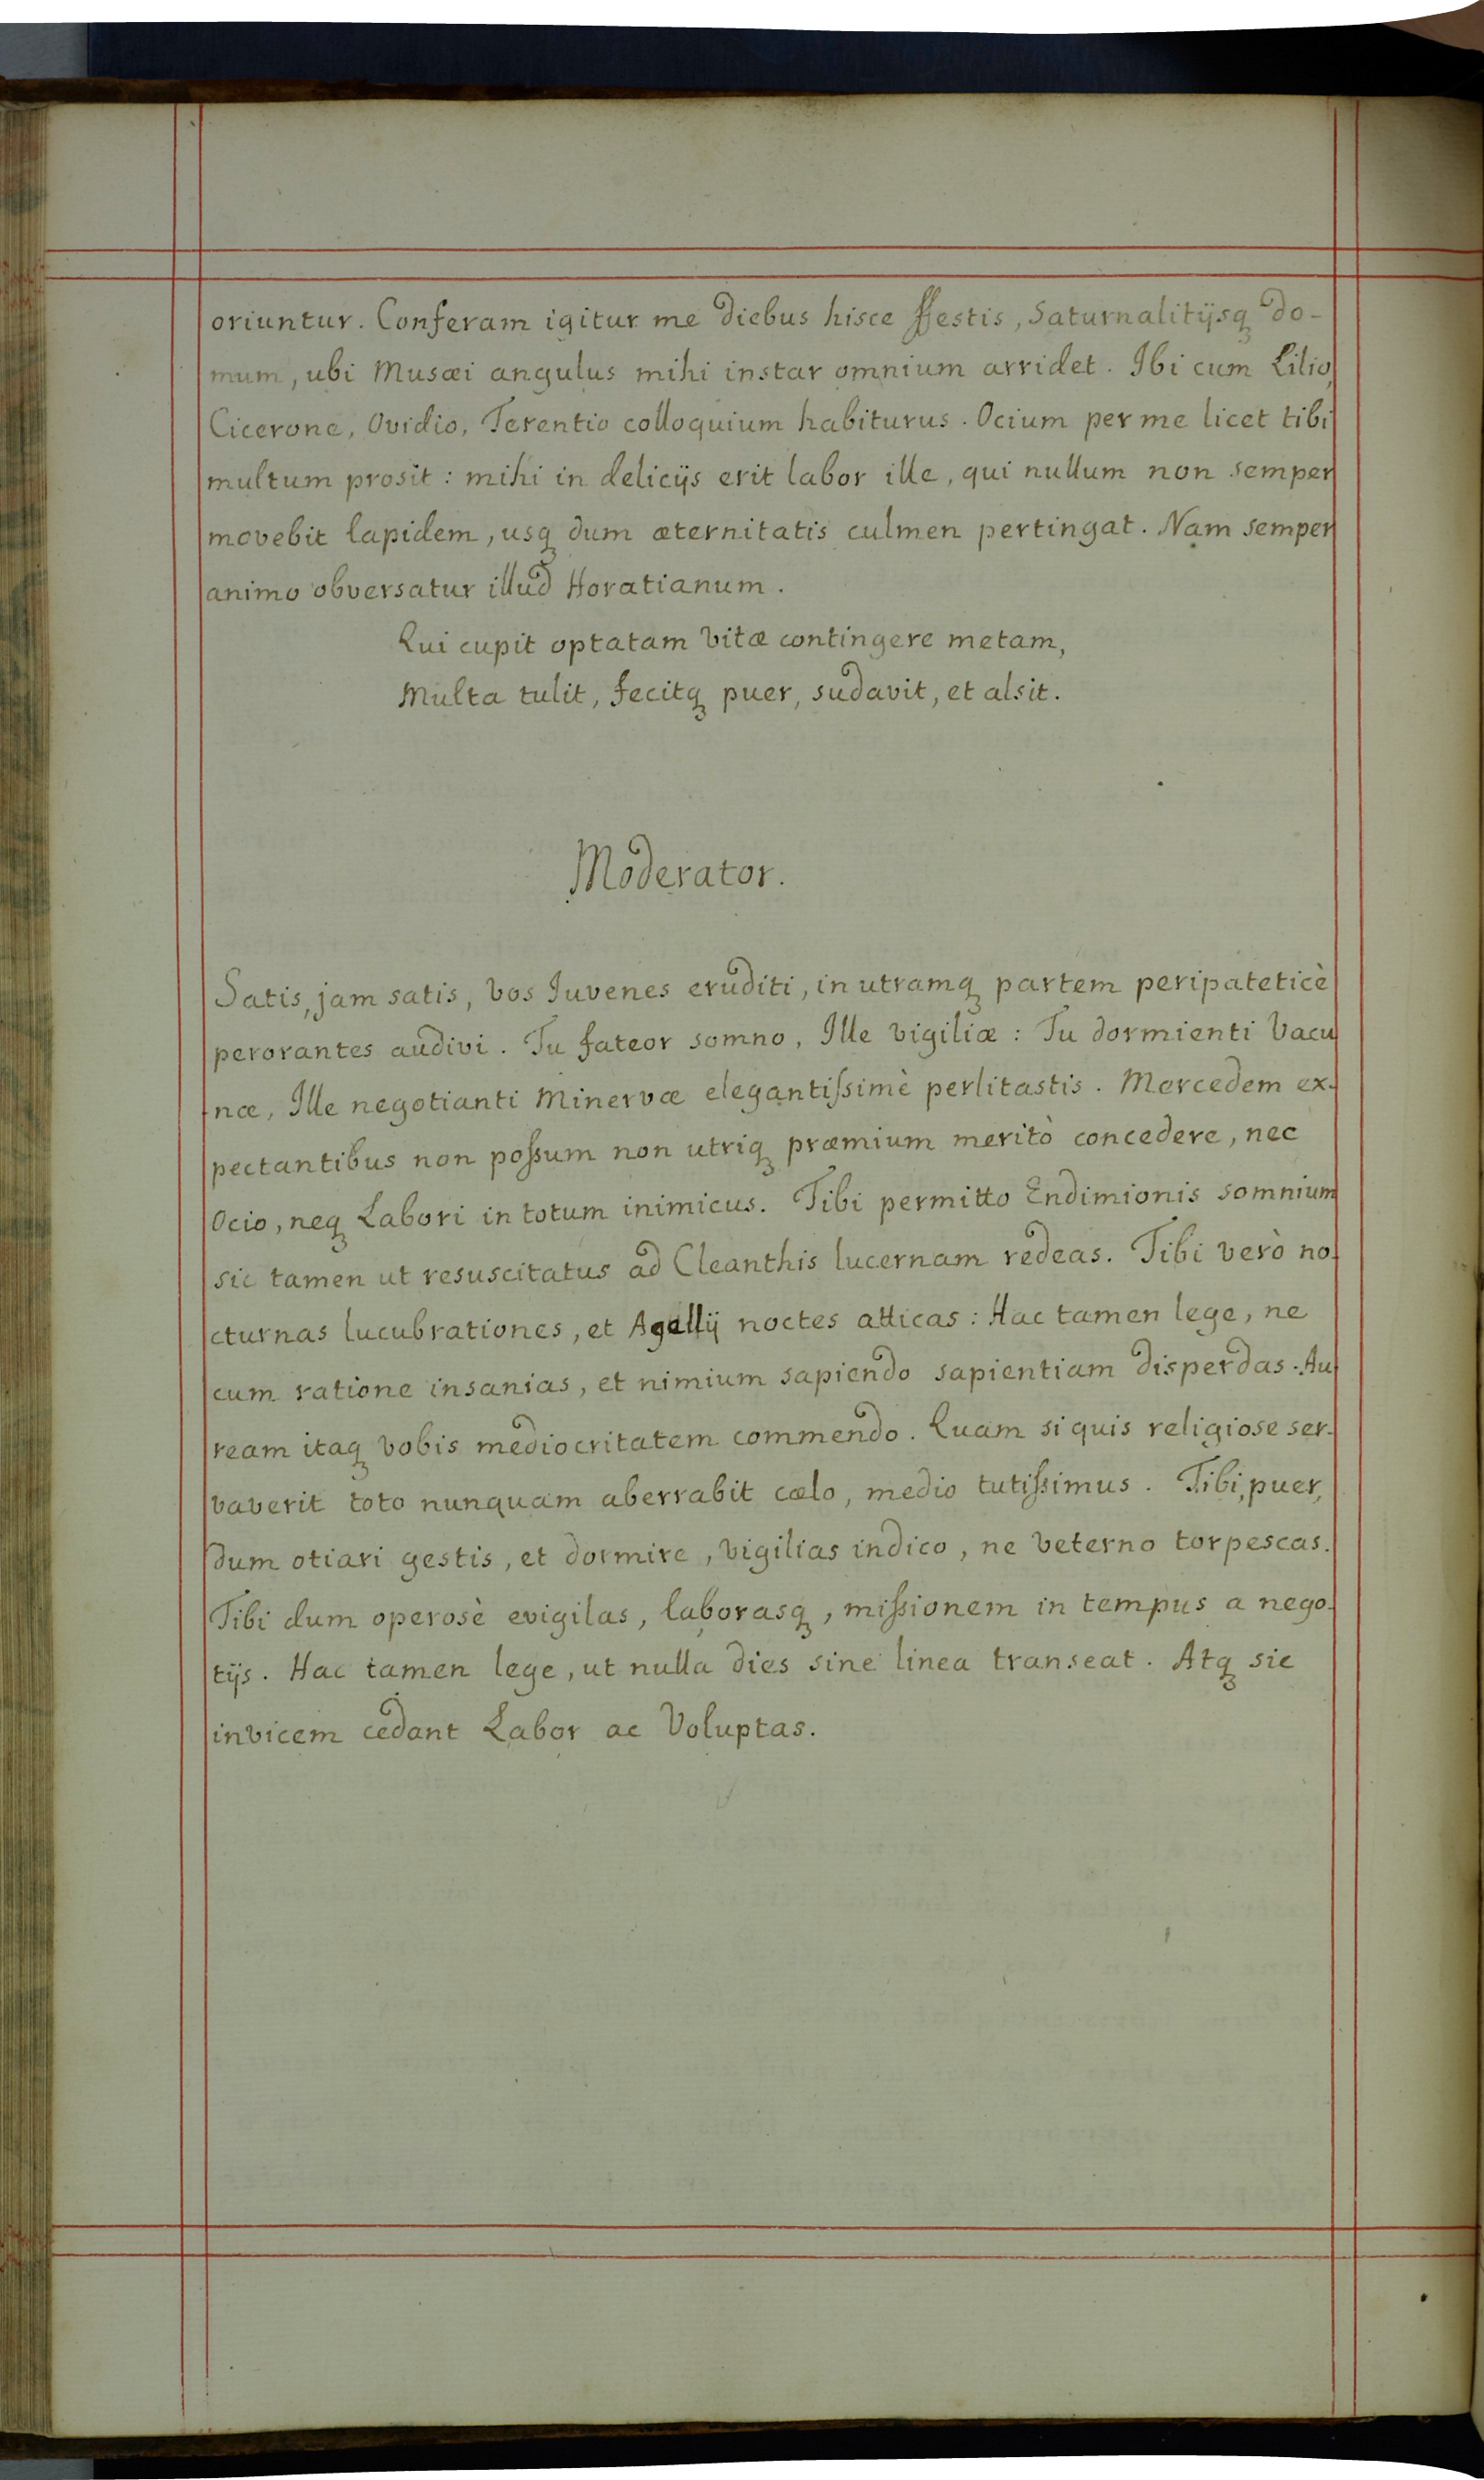 oriuntur. Conferam igitur me diebus hisce ffestis, Saturnalitijsqꝫ do-
mum, ubi Musæi angulus mihi instar omnium arridet. Ibi cum Lilio,
Cicerone, Ovidio, Terentio colloquium habiturus. Ocium per me licet tibi
multum prosit: mihi in delicijs erit labor ille, qui nullum non semper
movebit lapidem, usqꝫ dum æternitatis culmen pertingat. Nam semper
animo obversatur illud Horatianum.
Qui cupit optatam vitæ contingere metam,
Multa tulit, fecitqꝫ puer, sudavit, et alsit.
Moderator.
Satis, jam satis, vos Juvenes eruditi, in utramqꝫ partem peripateticè
perorantes audivi. Tu fateor somno, Ille vigiliæ: Tu dormienti Vacu
næ, Ille negotianti Minervæ elegantiſsimè perlitastis. Mercedem ex-
pectantibus non poſsum non utriqꝫ præmium meritò concedere, nec
Ocio, neqꝫ Labori in totum inimicus. Tibi permitto Endimionis somnium
sic tamen ut resuscitatus ad Cleanthis lucernam redeas. Tibi verò no-
cturnas lucubrationes, et Agellij noctes atticas: Hac tamen lege, ne
cum ratione insanias, et nimium sapiendo sapientiam disperdas. Au-
ream itaqꝫ vobis mediocritatem commendo. Quam si quis religiose ser-
vaverit toto nunquam aberrabit cœlo, medio tutiſsimus. Tibi, puer,
dum otiari gestis, et dormire, vigilias indico, ne veterno torpescas.
Tibi dum operosè evigilas, laborasqꝫ, miſsionem in tempus a nego-
tijs. Hac tamen lege, ut nulla dies sine linea transeat. Atqꝫ sic
invicem cedant Labor ac Voluptas.